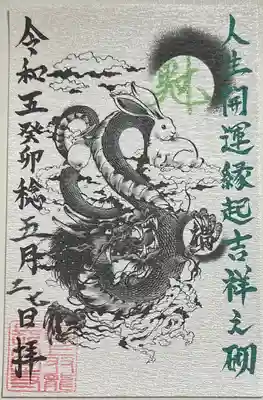 人生開運縁起吉祥之硯
財
令和五癸卯稔五月二七日拝